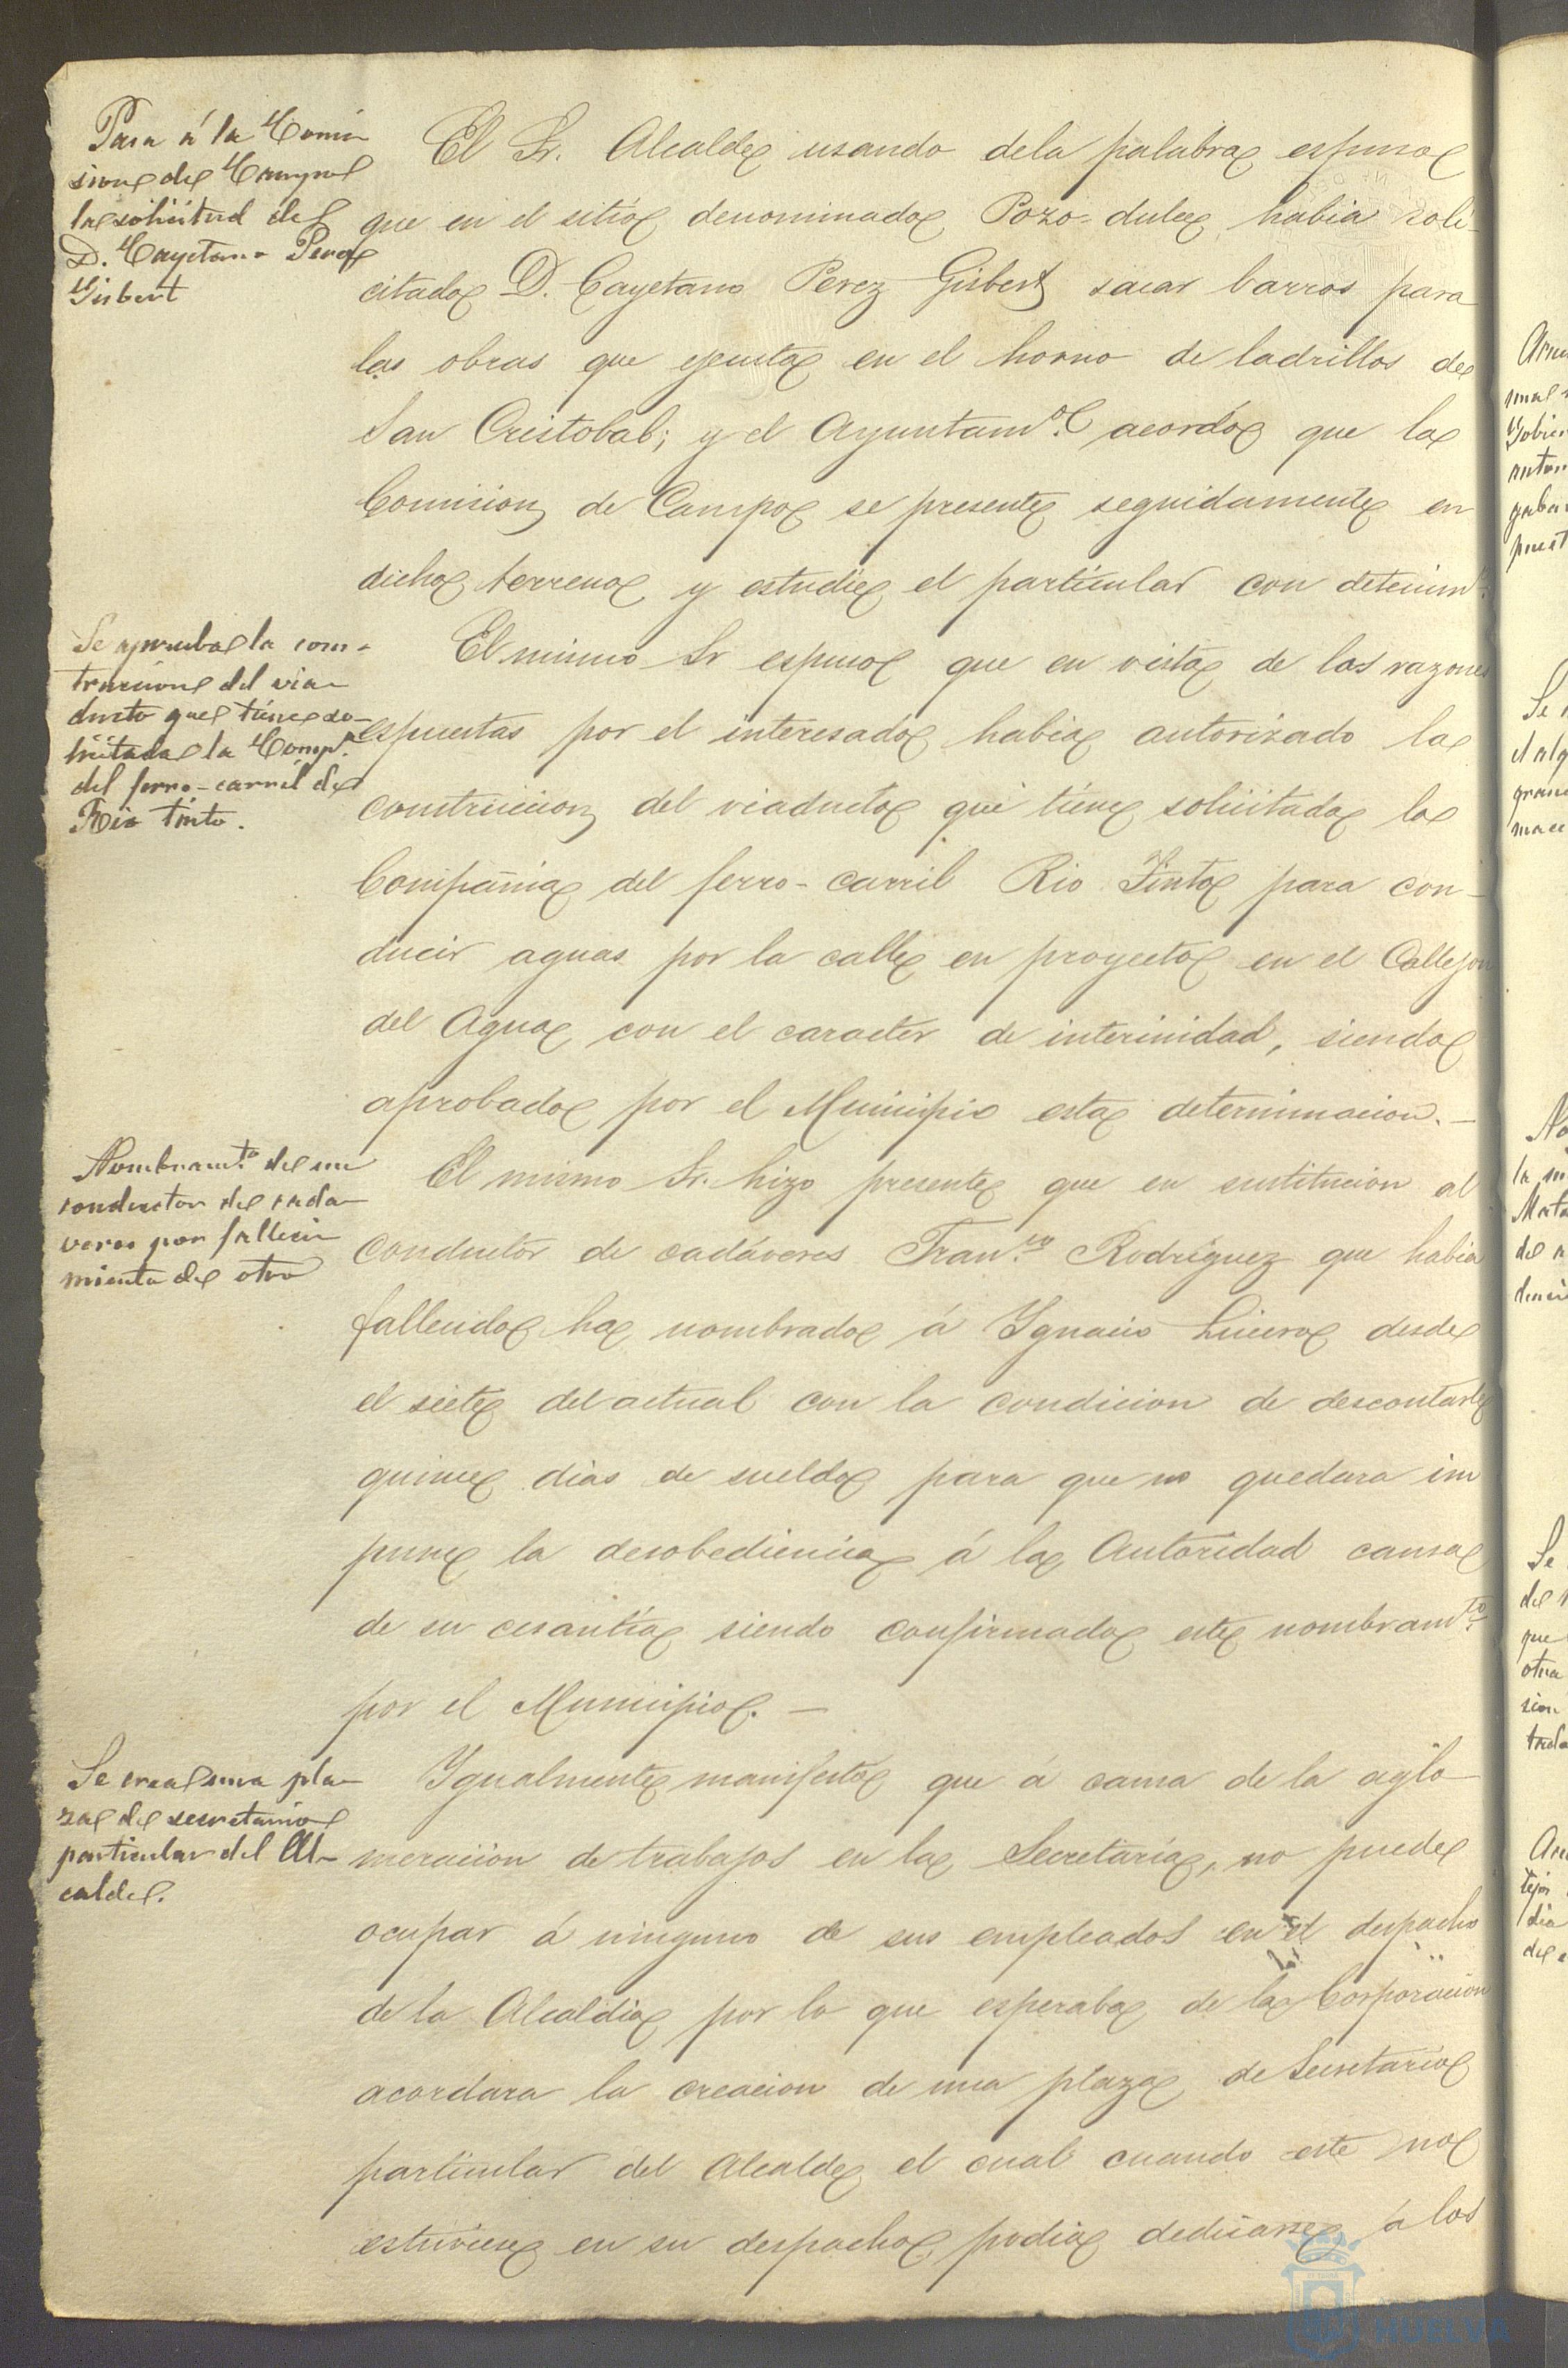 Pasa á la Comi
sion de Campo
la solicitud de
D. Cayetano Perez
Gisbert
El Sr. Alcalde usando dela palabra espuso
que en el sitio denominado Pozo-dulce habia soli-
citado D. Cayetano Perez Gisbert sacar barros para
las obras que ejecuta en el horno de ladrillos de
San Cristobal; y el Ayuntamo. acordó que la
Comision de Campo se presente seguidamente en
dicho terreno y estudie el particular con detenimto.
Se aprueba la cons-
truccion del via-
ducto que tiene so-
licitada la Compa.
del ferro-carril de
Rio tinto.
El mismo Sr espuso que en vista de las razones
espuestas por el interesado habia autorizado la
construccion del viaducto que tiene solicitado la
Compañia del ferro-carril Rio Tinto para con-
ducir aguas por la calle en proyecto en el Callejon
del Agua con el caracter de interinidad, siendo
aprobado por el Municipio esta determinacion.—
Nombramto. de un
conductor de cada-
veres por falleci
miento de otro
El mismo Sr. hizo presente que en sustitucion al
conductor de cadáveres Franco. Rodriguez que habia
fallecido ha nombrado á Ygnacio Lucero desde
el siete del actual con la condicion de descontarle
quince dias de sueldo para que no quedara im
pune la desobediencia á la Autoridad causa
de su cesantía siendo confirmado este nombramto.
por el Municipio.—
Se crea una pla-
za de secretario
particular del Al-
calde.
Ygualmente manifestó que á causa de la aglo-
meracion de trabajos en la Secretaría, no puede
ocupar á ninguno de sus empleados en el despacho
de la Alcaldia por lo que esperaba de la Corporacion
acordara la creacion de una plaza de Secretario
particular del Alcalde el cual cuando este no
estuviese en su despacho podia dedicarse á los
HUELVA